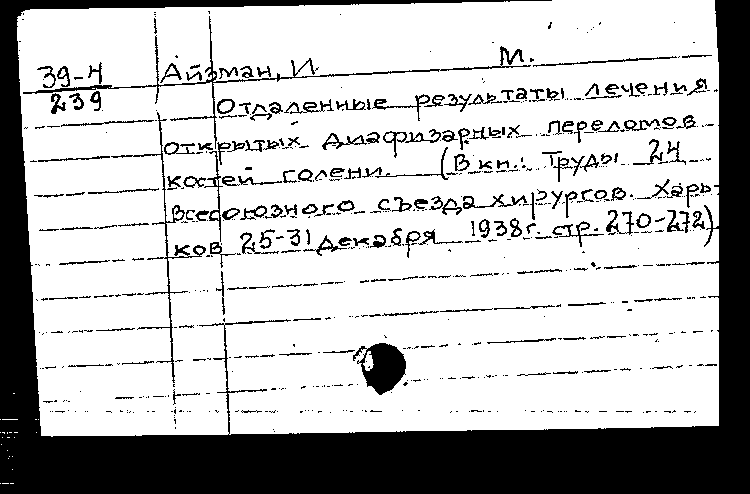 39-4 Айзман, И. М.
239 Отдаленные результаты лечения
открытых диафизарных переломов
костей голени. (В кн.: Труды 24
Всесоюзного съезда хирургов. Харь-
ков 25-31 декабря 1938г. стр. 270-272).